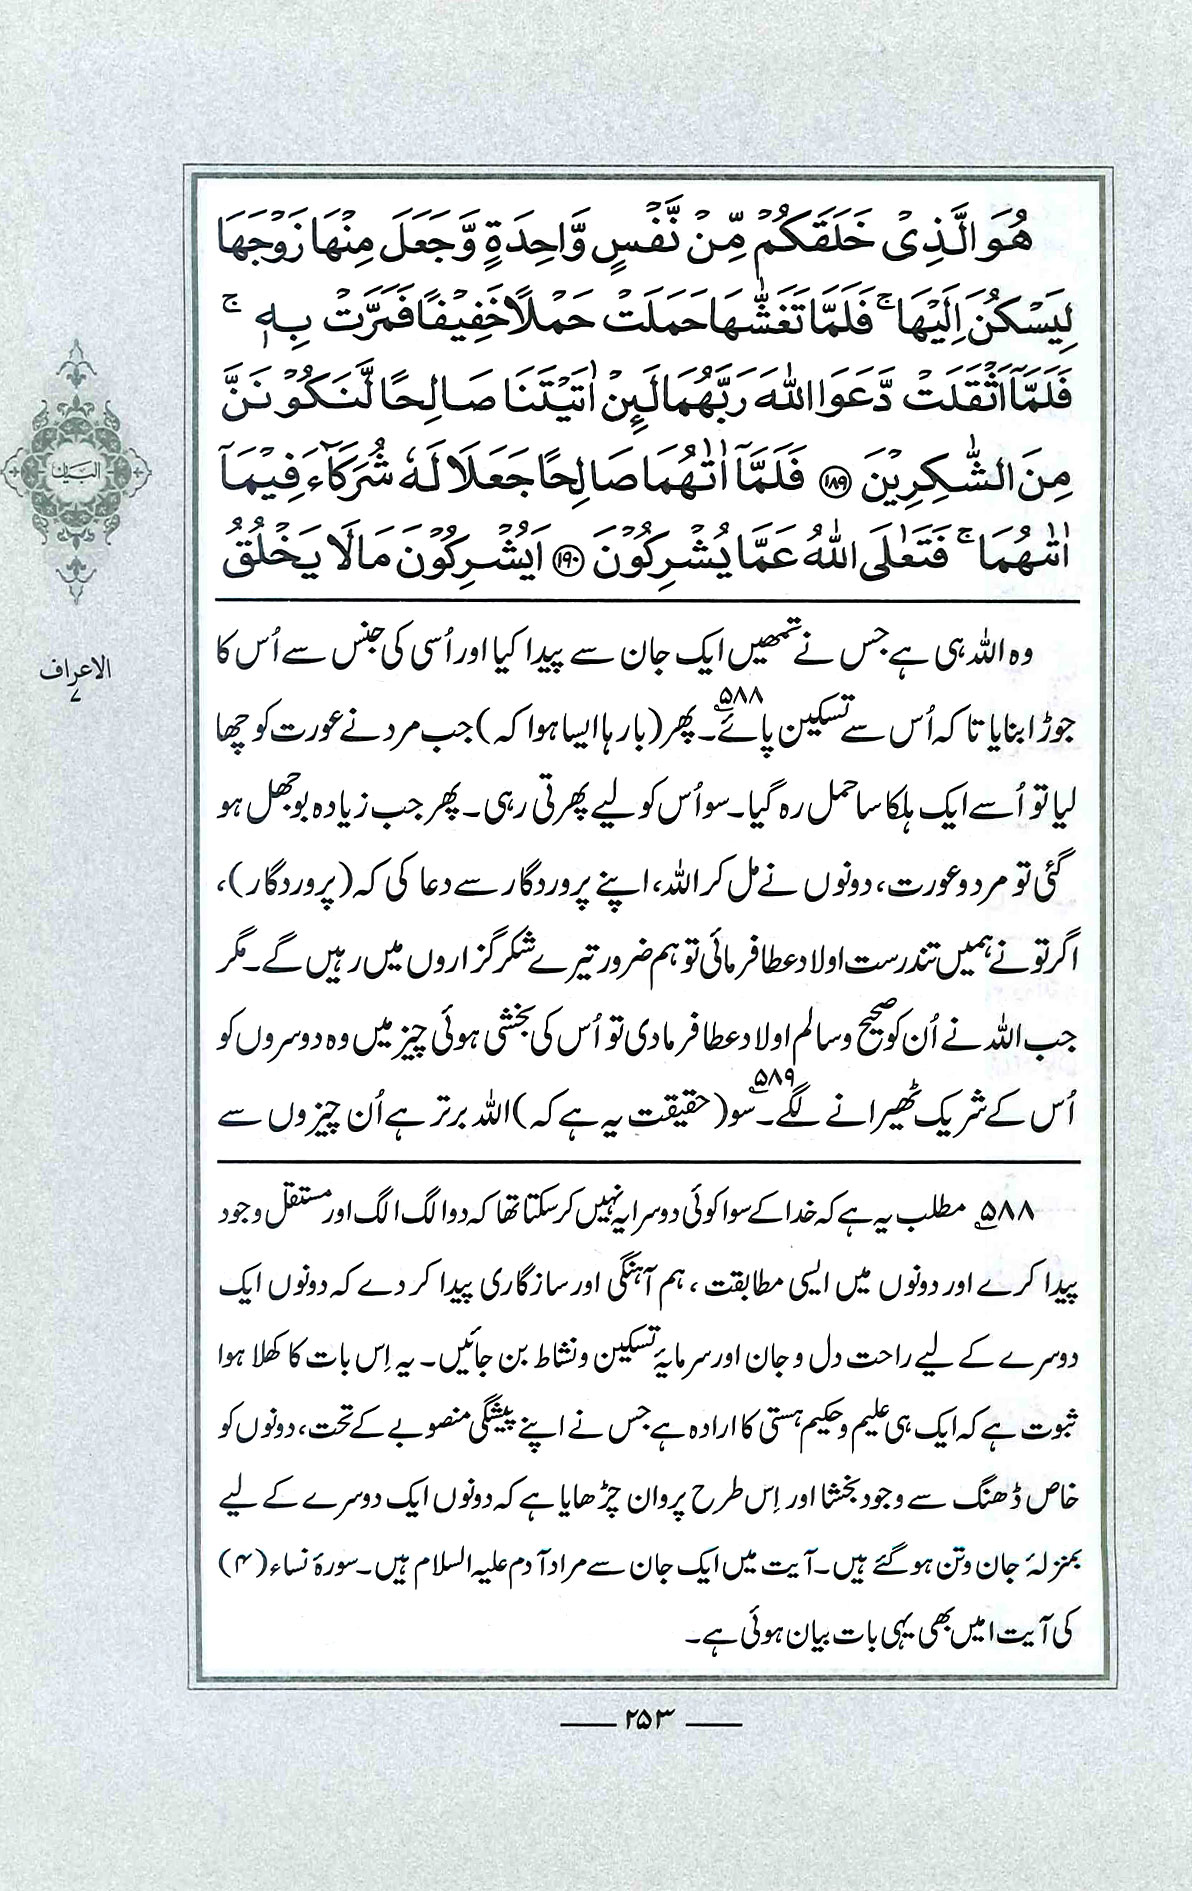 هُوَ الَّذِیْ خَلَقَکُمْ مِّنْ نَّفْسٍ وَّاحِدَةٍ وَّجَعَلَ مِنْهَا زَوْجَهَا
لِیَسْکُنَ اِلَیْهَا ۚ فَلَمَّا تَغَشّٰىهَا حَمَلَتْ حَمْلًا خَفِیْفًا فَمَرَّتْ بِهٖ ۚ
فَلَمَّآ اَثْقَلَتْ دَّعَوَا اللّٰهَ رَبَّهُمَا لَئِنْ اٰتَیْتَنَا صَالِحًا لَّنَکُوْنَنَّ
مِنَ الشّٰکِرِیْنَ ﴿۱۸۹﴾ فَلَمَّآ اٰتٰىهُمَا صَالِحًا جَعَلَا لَهٗ شُرَکَآءَ فِیْمَآ
اٰتٰىهُمَا ۚ فَتَعٰلَی اللّٰهُ عَمَّا یُشْرِکُوْنَ ﴿۱۹۰﴾ اَیُشْرِکُوْنَ مَا لَا یَخْلُقُ
وہ اللہ ہی ہے جس نے تمھیں ایک جان سے پیدا کیا اور اُسی کی جنس سے اُس کا
جوڑا بنایا تاکہ اُس سے تسکین پائے۔۵۸۸ پھر (بارہا ایسا ہوا کہ) جب مرد نے عورت کو چھا
لیا تو اُسے ایک ہلکا سا حمل رہ گیا۔ سو اُس کو لیے پھرتی رہی۔ پھر جب زیادہ بوجھل ہو
گئی تو مرد و عورت، دونوں نے مل کر اللہ، اپنے پروردگار سے دعا کی کہ (پروردگار)،
اگر تو نے ہمیں تندرست اولاد عطا فرمائی تو ہم ضرور تیرے شکر گزاروں میں رہیں گے۔ مگر
جب اللہ نے اُن کو صحیح و سالم اولاد عطا فرما دی تو اُس کی بخشی ہوئی چیز میں وہ دوسروں کو
اُس کے شریک ٹھیرانے لگے۔۵۸۹ سو (حقیقت یہ ہے کہ) اللہ برتر ہے اُن چیزوں سے
۵۸۸ مطلب یہ ہے کہ خدا کے سوا کوئی دوسرا یہ نہیں کر سکتا تھا کہ دو الگ الگ اور مستقل وجود
پیدا کرے اور دونوں میں ایسی مطابقت، ہم آہنگی اور سازگاری پیدا کر دے کہ دونوں ایک
دوسرے کے لیے راحت دل و جان اور سرمایۂ تسکین و نشاط بن جائیں۔ یہ اِس بات کا کھلا ہوا
ثبوت ہے کہ ایک ہی علیم و حکیم ہستی کا ارادہ ہے جس نے اپنے پیشگی منصوبے کے تحت، دونوں کو
خاص ڈھنگ سے وجود بخشا اور اِس طرح پروان چڑھایا ہے کہ دونوں ایک دوسرے کے لیے
بمنزلۂ جان و تن ہو گئے ہیں۔ آیت میں ایک جان سے مراد آدم علیہ السلام ہیں۔ سورۂ نساء (۴)
کی آیت ۱ میں بھی یہی بات بیان ہوئی ہے۔
البیان
الاعراف
۷
۲۵۳